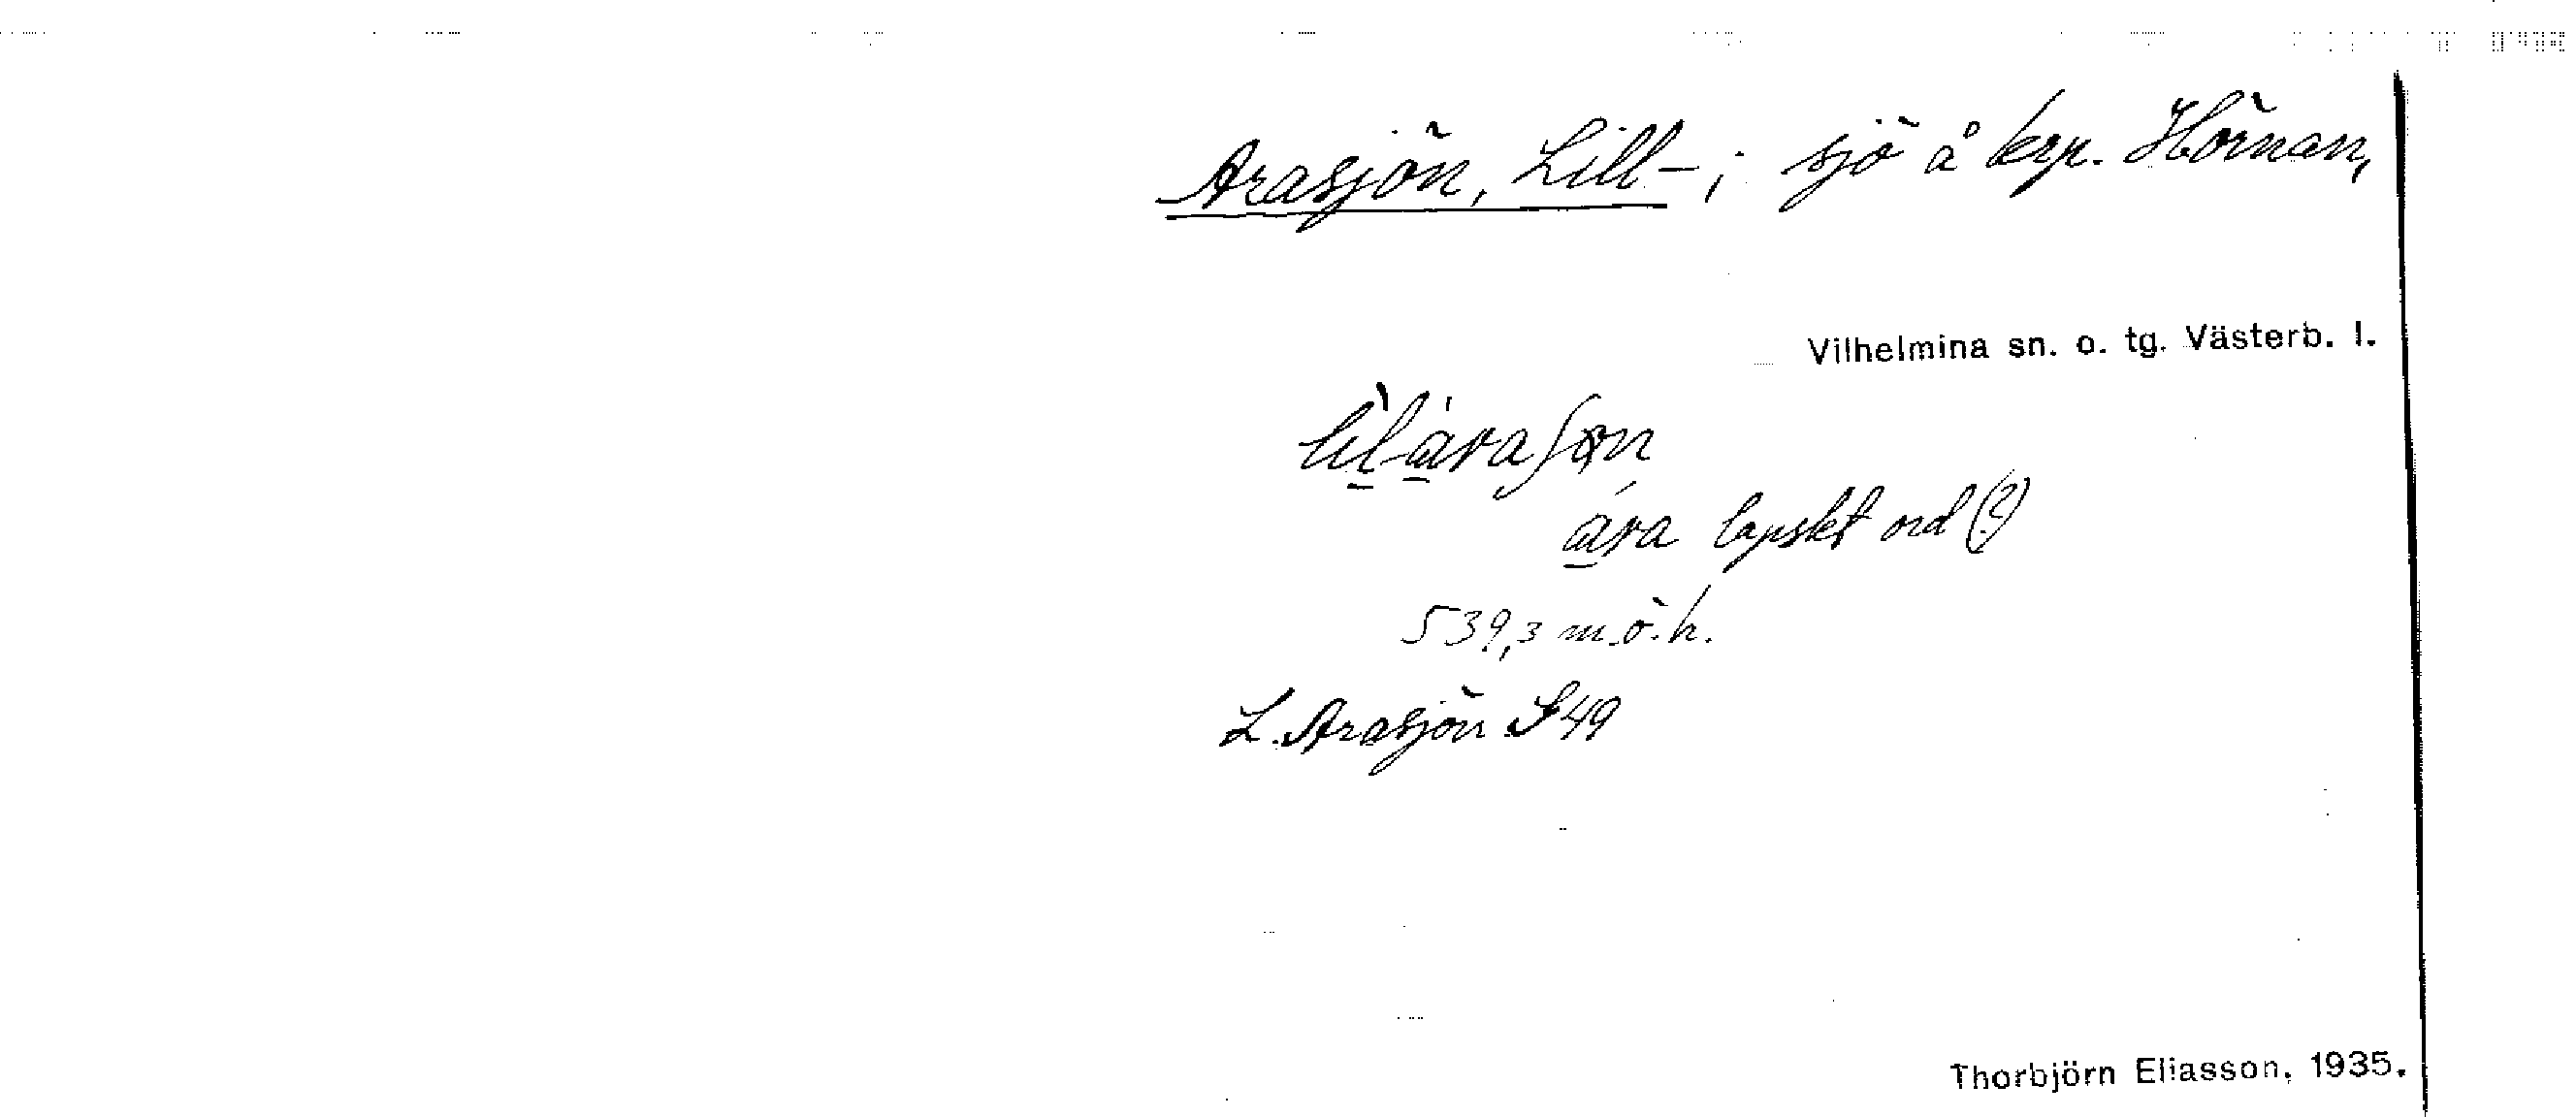 Arasjön, Lill-; sjö å krp. Hörnan,
Vilhelmina sn. o. tg. Västerb. l.
ara lapskt ord (?)
539,3 m.ö.h.
L. Arasjön S 49
Thorbjörn Eliasson, 1935.